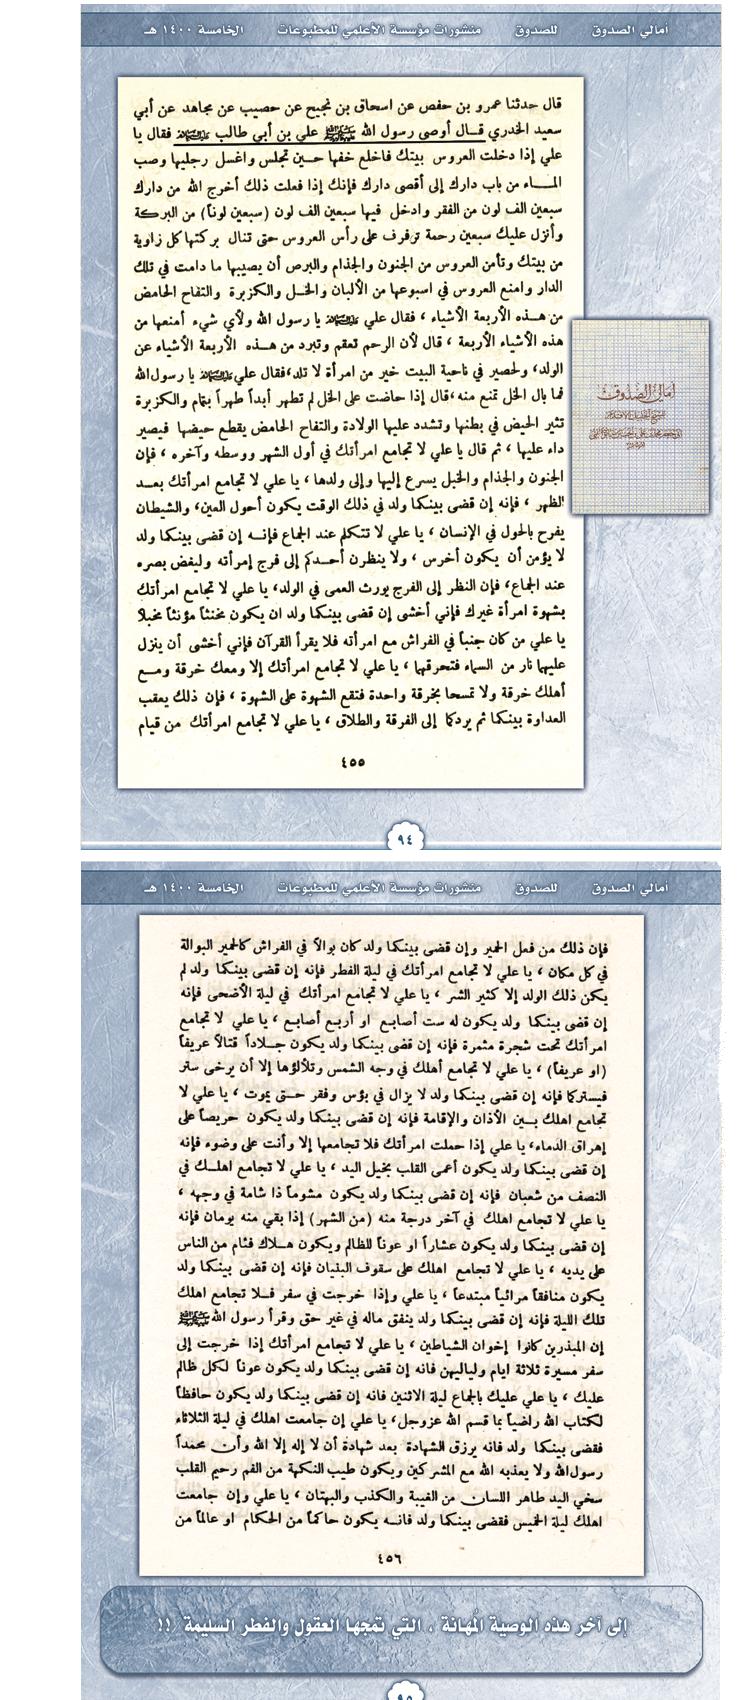 أمالي الصدوق للصدوق منشورات مؤسسة الأعلمي للمطبوعات الخامسة ١٤٠٠ هـ
قال حدثنا عمرو بن حفص عن اسحاق بن نجيح عن حصيب عن مجاهد عن أبي
سعيد الخدري قـال أوصى رسول الله ﷺ علي بن أبي طالب عليه السلام فقال يا
علي إذا دخلت العروس بيتك فاخلع خفها حـين تجلس واغسل رجليها وصب
المـاء من باب دارك إلى أقصى دارك فإنك إذا فعلت ذلك أخرج الله من دارك
سبعين الف لون من الفقر وادخل فيها سبعين الف لون (سبعين لوناً) من البركة
وأنزل عليك سبعين رحمة ترفرف على رأس العروس حتى تنال بركتها كل زاوية
من بيتك وتأمن العروس من الجنون والجذام والبرص أن يصيبها ما دامت في تلك
الدار وامنع العروس في اسبوعها من الألبان والخـل والكزبرة والتفاح الحامض
من هـذه الأربعة الأشياء ، فقال علي عليه السلام يا رسول الله ولأي شيء أمنعها من
هذه الأشياء الأربعة ، قال لأن الرحم تعقم وتبرد من هـذه الأربعة الأشياء عن
الولد، ولحصير في ناحية البيت خير من امرأة لا تلد،فقال علي عليه السلام يا رسول الله
فما بال الخل تمنع منه،قال إذا حاضت على الخل لم تطهر أبداً طهراً بتمام والكزبرة
تثير الحيض في بطنها وتشدد عليها الولادة والتفاح الحامض يقطع حيضها فيصير
داء عليها ، ثم قال يا علي لا تجامع امرأتك في أول الشهر ووسطه وآخره ، فإن
الجنون والجذام والخبل يسرع إليها وإلى ولدها ، يا علي لا تجامع امرأتك بعـد
الظهر ، فإنه إن قضى بينكما ولد في ذلك الوقت يكون أحول العين، والشيطان
يفرح بالحول في الإنسان ، يا علي لا تتكلم عند الجماع فإنـه إن قضى بينكما ولد
لا يؤمن أن يكون أخرس ، ولا ينظرن أحـدكم إلى فرج إمرأته وليغض بصره
عند الجماع، فإن النظر إلى الفرج يورث العمى في الولد، يا علي لا تجامع امرأتك
بشهوة امرأة غيرك فإني أخشى إن قضى بينكما ولد ان يكون مخنثاً مؤنثاً مخبلا
يا علي من كان جنباً في الفراش مع امرأته فلا يقرأ القرآن فإني أخشى أن ينزل
عليهما نار من السماء فتحرقهما ، يا علي لا تجامع امرأتك إلا ومعك خرقة ومـع
أهلك خرقة ولا تمسحا بخرقة واحدة فتقع الشهوة على الشهوة ، فإن ذلك يعقب
العداوة بينكما ثم يردكما إلى الفرقة والطلاق ، يا علي لا تجامع امرأتك من قيام
٤٥٥
أمالي الصدوق
٩٤
أمالي الصدوق للصدوق منشورات مؤسسة الأعلمي للمطبوعات الخامسة ١٤٠٠ هـ
فإن ذلك من فعل الحمير وإن قضى بينكما ولد كان بوالاً في الفراش كالحمير البوالة
في كل مكان ، يا علي لا تجامع امرأتك في ليلة الفطر فإنه إن قضى بينكما ولد لم
يكن ذلك الولد إلا كثير الشر ، يا علي لا تجامع امرأتك في ليلة الأضحى فإنه
إن قضى بينكما ولد يكون له ست أصابع او أربع أصابع ، يا علي لا تجامع
امرأتك تحت شجرة مثمرة فإنه إن قضى بينكما ولد يكون جـلاداً قتالاً عريفاً
(او عريفاً) ، يا علي لا تجامع أهلك في وجه الشمس وتلألؤها إلا أن يرخى ستر
فيستركما فإنه إن قضى بينكما ولد لا يزال في بؤس وفقر حـتى يموت ، يا علي لا
تجامع اهلك بـين الأذان والإقامة فإنه إن قضى بينكما ولد يكون حريصاً على
إهراق الدماء، يا علي إذا حملت امرأتك فلا تجامعها إلا وأنت على وضوء فإنه
إن قضى بينكما ولد يكون أعمى القلب بخيل اليد ، يا علي لا تجامع اهلـك في
النصف من شعبان فإنه إن قضى بينكما ولد يكون مشوماً ذا شامة في وجهه ،
يا علي لا تجامع اهلك في آخر درجة منه (من الشهر) إذا بقي منه يومان فإنه
إن قضى بينكما ولد يكون عشاراً او عوناً للظالم ويكون هـلاك فئام من الناس
على يديه ، يا علي لا تجامع اهلك على سقوف البنيان فإنه إن قضى بينكما ولد
يكون منافقاً مرائياً مبتدعاً ، يا علي وإذا خرجت في سفر فـلا تجامع اهلك
تلك الليلة فإنه إن قضى بينكما ولد ينفق ماله في غير حق وقرأ رسول الله ﷺ
إن المبذرين كانوا إخوان الشياطين ، يا علي لا تجامع امرأتك إذا خرجت إلى
سفر مسيرة ثلاثة ايام ولياليهن فانه إن قضى بينكما ولد يكون عوناً لكل ظالم
عليك ، يا علي عليك بالجماع ليلة الاثنين فانه إن قضى بينكما ولد يكون حافظاً
لكتاب الله راضياً بما قسم الله عزوجل، يا علي إن جامعت اهلك في ليلة الثلاثاء
فقضى بينكما ولد فانه يرزق الشهادة بعد شهادة أن لا إله إلا الله وأن محمداً
رسول الله ولا يعذبه الله مع المشركين ويكون طيب النكهة من الفم رحيم القلب
سخي اليد طاهر اللسان من الغيبة والكذب والبهتان ، يا علي وإن جامعت
اهلك ليلة الخميس فقضى بينكما ولد فانـه يكون حاكماً من الحكام او عالماً من
٤٥٦
إلى آخر هذه الوصية المُهانة ، التي تمجها العقول والفطر السليمة !!
٩٥